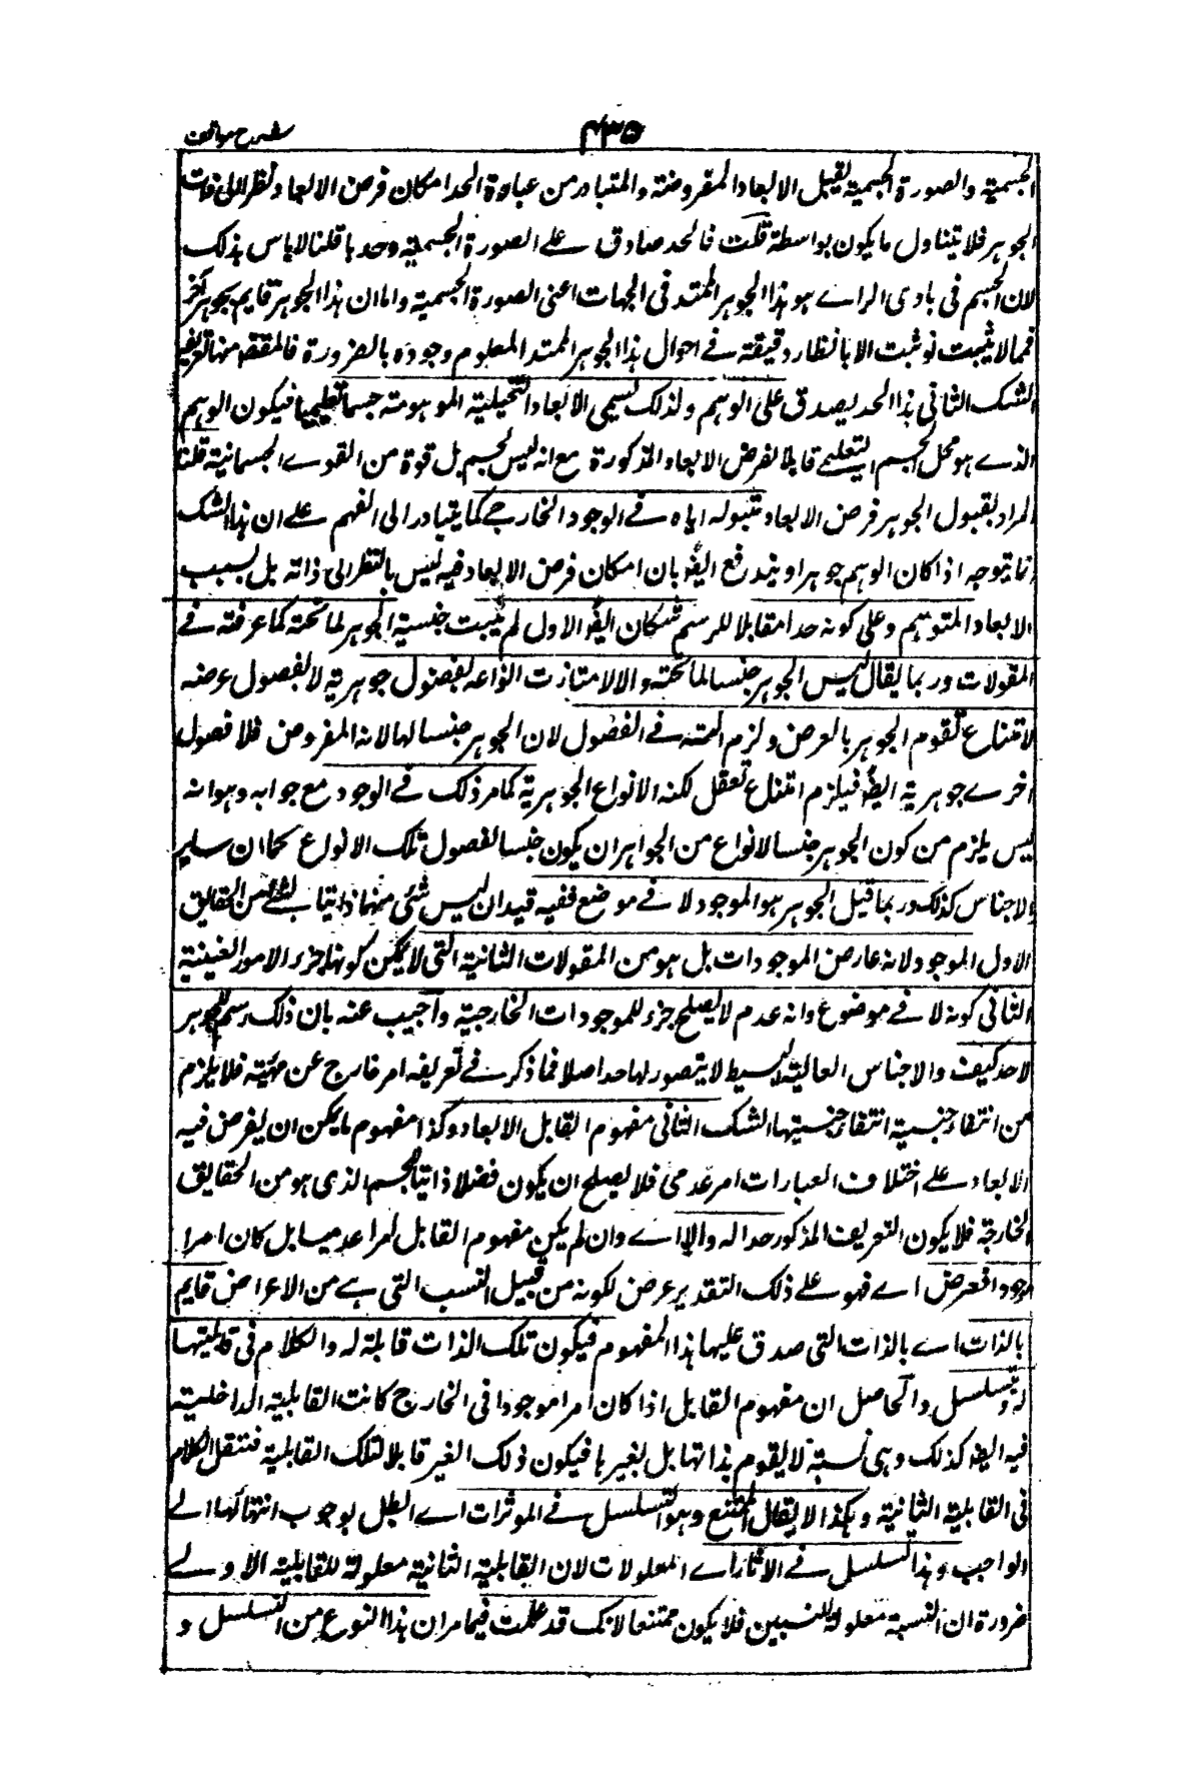 شرح مواقف
٤٣٥
الجسمية والصورة الجسمية لقبل الابعاد المفروضة والمتبادر من عبارة الحد امكان فرض الابعاد نظرا الى ذات
الجوهر فلا يتناول ما يكون بواسطة قلت فالحد صادق على الصورة الجسمية وحدها قلنا لا باس بذلك
لان الجسم فى بادى الراى هو هذا الجوهر الممتد فى الجهات اعنى الصورة الجسمية واما ان هذا الجوهر قايم بجوهر آخر
فمما لا يثبت لو ثبت الا بانظار دقيقة فى احوال هذا الجوهر الممتد المعلوم وجوده بالضرورة فالمقصد منها تعريفه
الشك الثانى هذا الحد يصدق على الوهم ولذلك تسمى الابعاد التخيلية الموهومة جسما تعليميا فيكون الوهم
الذى هو محل الجسم التعليمى قابلا لفرض الابعاد المذكورة مع انه ليس بجسم بل قوة من القوى الجسمانية قلنا
المراد بقبول الجوهر فرض الابعاد قبوله اياه فى الوجود الخارجى كما يتبادر الى الفهم على ان هذا الشك
انما يتوجه اذا كان الوهم جوهرا ويندفع ايضا بان امكان فرض الابعاد فيه ليس بالنظر الى ذاته بل بسبب
الابعاد المتوهم وعلى كونه حدا مقابلا للرسم شكان ايضا الاول لم يثبت جنسية الجوهر لما تحته كما عرفته فى
المقولات وربما يقال ليس الجوهر جنسا لما تحته والا لامتازت انواعه بفصول جوهرية لا بفصول عرضه
لامتناع تقوم الجوهر بالعرض ولزم التسه فى الفصول لان الجوهر جنسا لها لانه المفروض فلا فصول
اخرى جوهرية ايضا فيلزم امتناع تعقل لكنه الانواع الجوهرية كما مر ذلك فى الوجود مع جوابه وهو انه
ليس يلزم من كون الجوهر جنسا لانواع من الجواهر ان يكون جنسا لفصول تلك الانواع كما ان ساير
الاجناس كذلك وربما قيل الجوهر هو الموجود لا فى موضع ففيه قيد ان ليس شئ منهما ذاتيا لشئ من الحقايق
الاول الموجود لانه عارض الموجودات بل هو من المقولات الثانية التى لا يمكن كونها جزء الامور العينية
الثانى كونه لا فى موضوع وانه عدم لا يصلح جزء للموجودات الخارجية واجيب عنه بان ذلك رسم للجوهر
لا حد كيف والاجناس العالية البسيط لا يتصور لها حد اصلا فما ذكر فى تعريفه امر خارج عن مهيته فلا يلزم
من انتفاء جنسية انتفاء جنسيتها الشك الثانى مفهوم القابل الابعاد وكذا مفهوم ما يمكن ان يفرض فيه
الابعاد على اختلاف العبارات امر عدمى فلا يصلح ان يكون فصلا ذاتيا للجسم الذى هو من الحقايق
الخارجة فلا يكون التعريف المذكور حدا له والا اى وان لم يكن مفهوم القابل امرا عدميا بل كان امرا
موجودا فعرض اى فهو على ذلك التقدير عرض لكونه من قبيل النسب التى هى من الاعراض قايم
بالذات اى بالذات التى صدق عليها هذا المفهوم فيكون تلك الذات قابلة له والكلام فى قابليتها
له ويتسلسل والحاصل ان مفهوم القابل اذا كان امرا موجودا فى الخارج كانت القابلية الداخلية
فيه ايضا كذلك وهى نسبة لا يقوم بذاتها بل بغيرها فيكون ذلك الغير قابلا لتلك القابلية فننتقل الكلام
فى القابلية الثانية وهكذا لا يقال الممتنع وهو التسلسل فى الموثرات اى العلل لوجوب انتهائها الى
الواجب وهذا تسلسل فى الاثار اى المعلولات لان القابلية الثانية معلولة للقابلية الاولى
ضرورة ان النسبة معلولة للمنتسبين فلا يكون ممتنعا لانك قد علمت فيما مر ان هذا النوع من التسلسل و